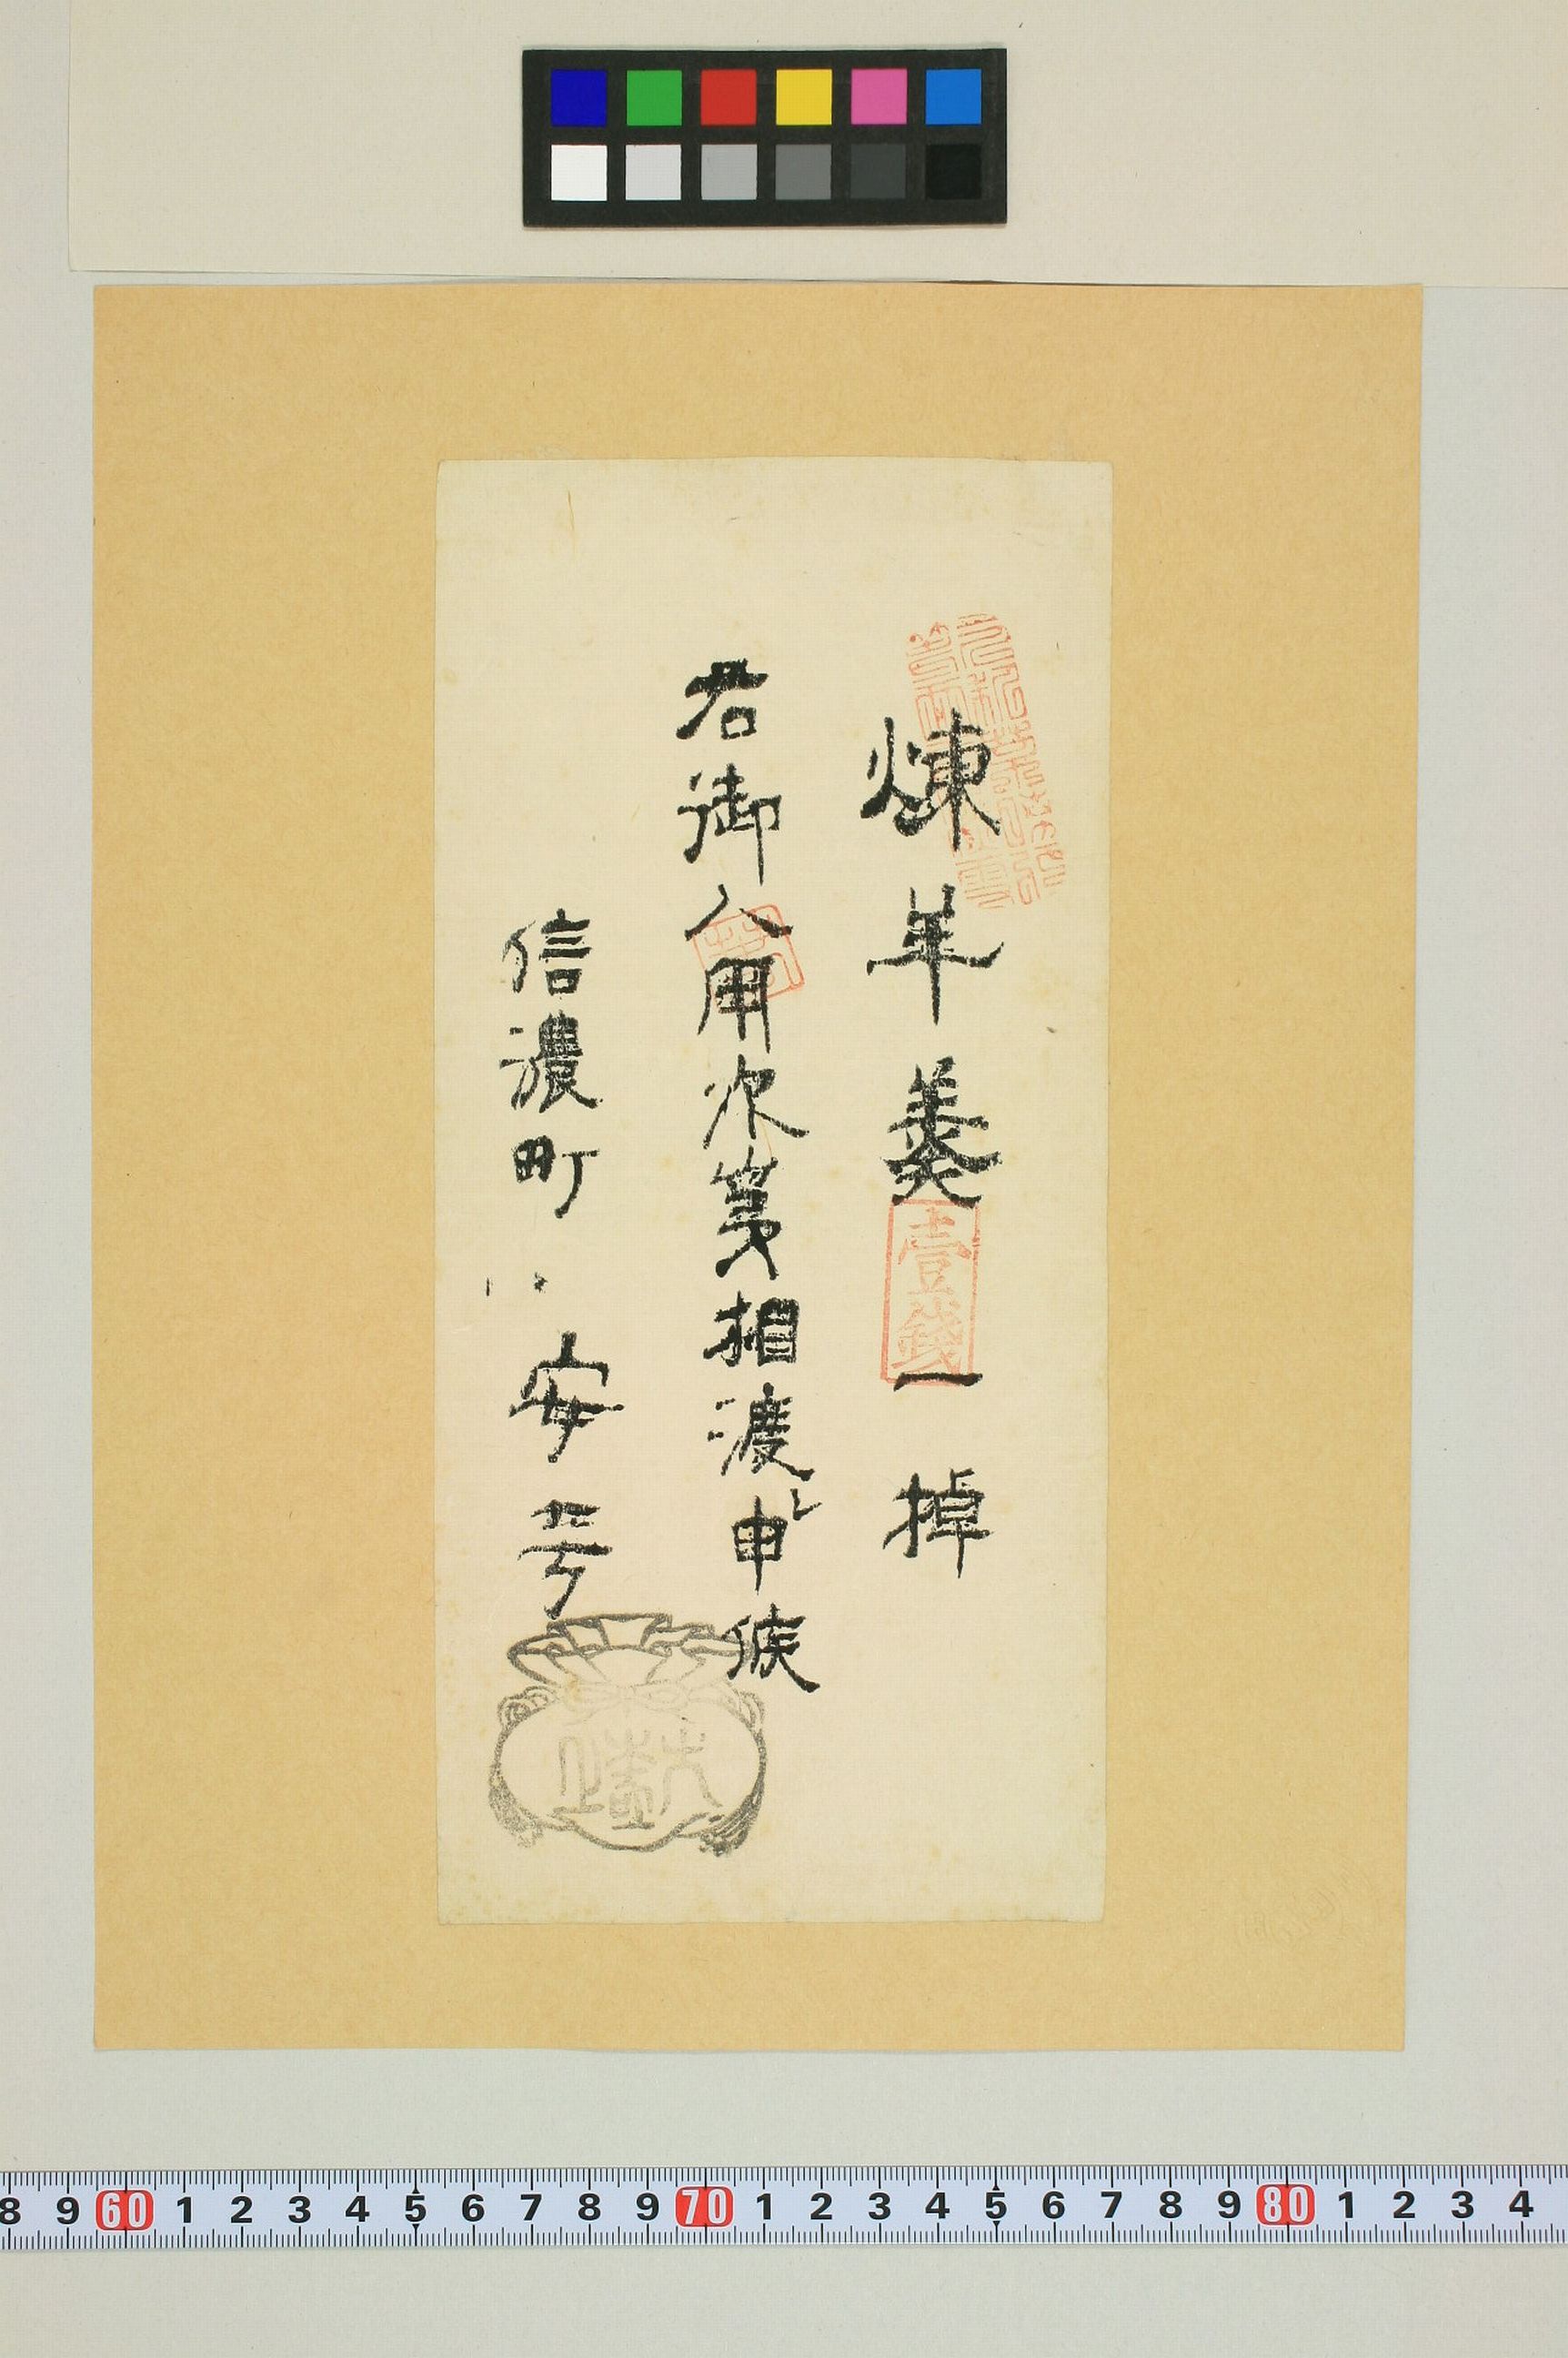 煉羊羹一掉
壹錢
右御入用次第相渡シ申候
信濃町 安
8 9 60 1 2 3 4 5 6 7 8 9 70 1 2 3 4 5 6 7 8 9 80 1 2 3 4